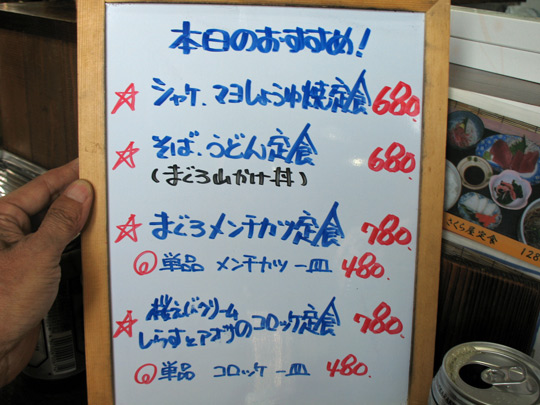 本日のおすすめ!
☆シャケ、マヨしょうゆ焼定食 680.
☆そば、うどん定食 680.
(まぐろ山かけ丼)
☆まぐろメンチカツ定食 780.
単品 メンチカツ 一皿 480.
☆桜えびクリーム
しらすとアオサのコロッケ定食 780.
単品 コロッケ 一皿 480.
さくら屋定食
128